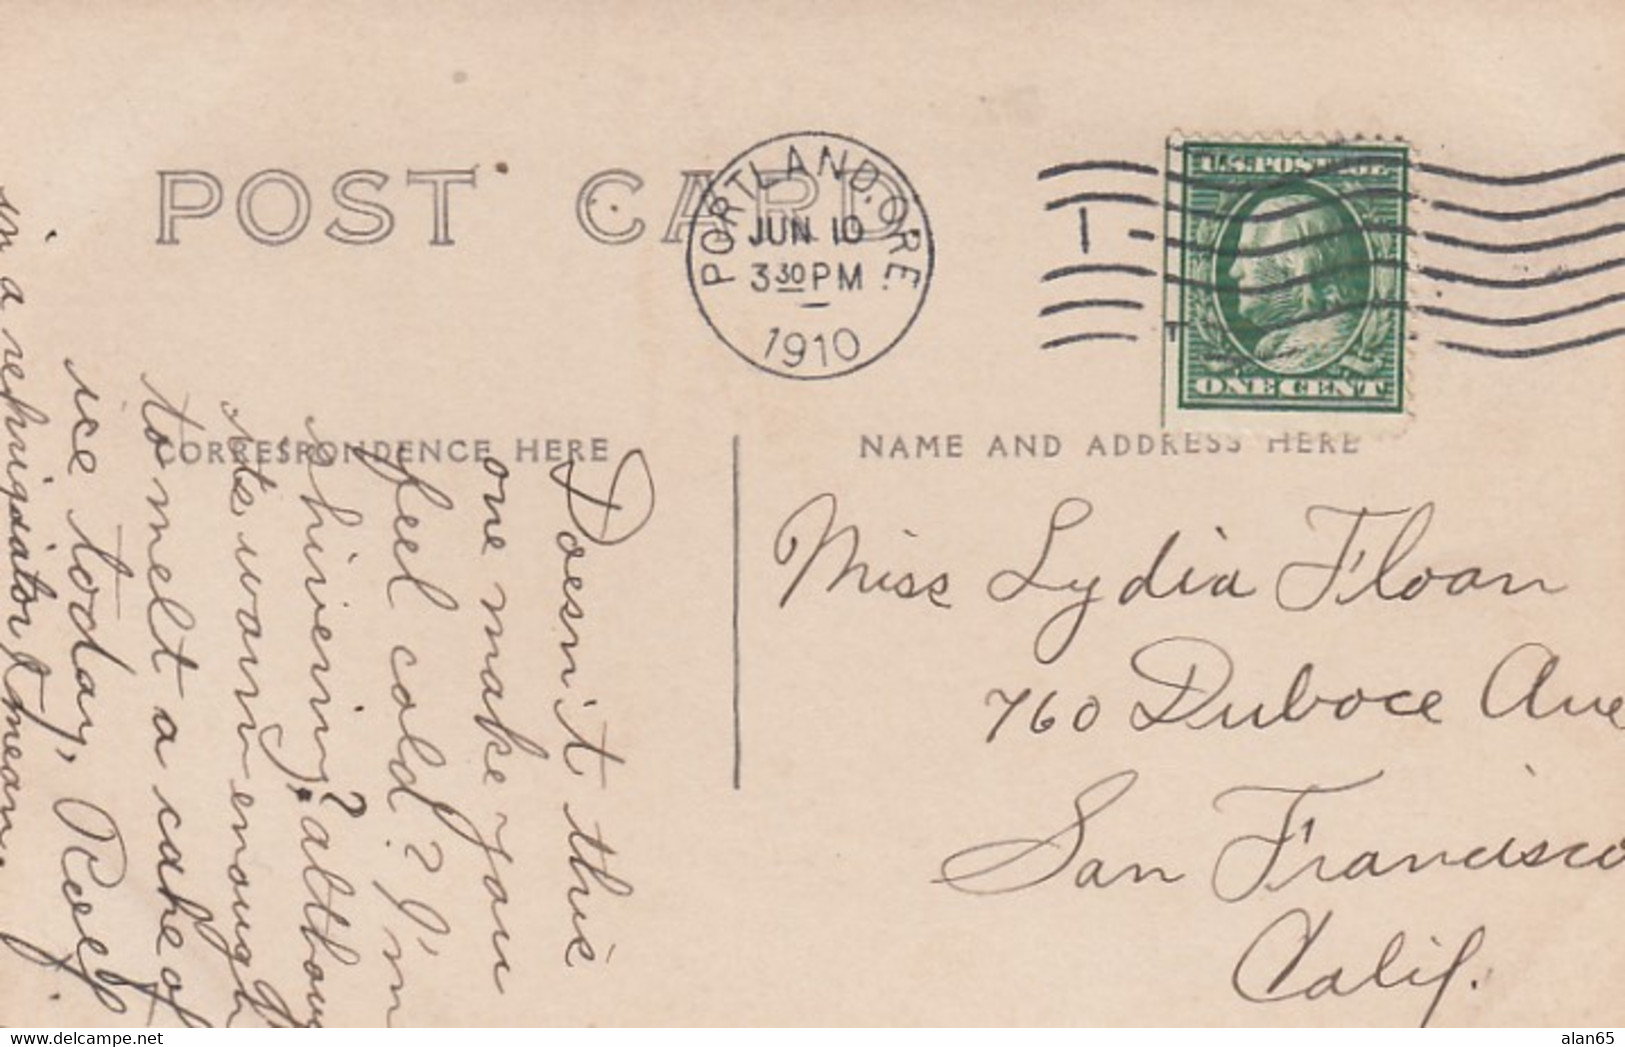 POST CARD
PORTLAND, ORE.
JUN 10
3 30 PM
1910
1
T
U.S. POSTAGE
ONE CENT
CORRESPONDENCE HERE
NAME AND ADDRESS HERE
Doesn't this
one make you
feel cold? I'm
shivering, although
its warm enough
to melt a cake of
ice today,
in a refrigiator I mean.
Miss Lydia Floan
760 Duboce Ave
San Francisco
Calif.
alan65